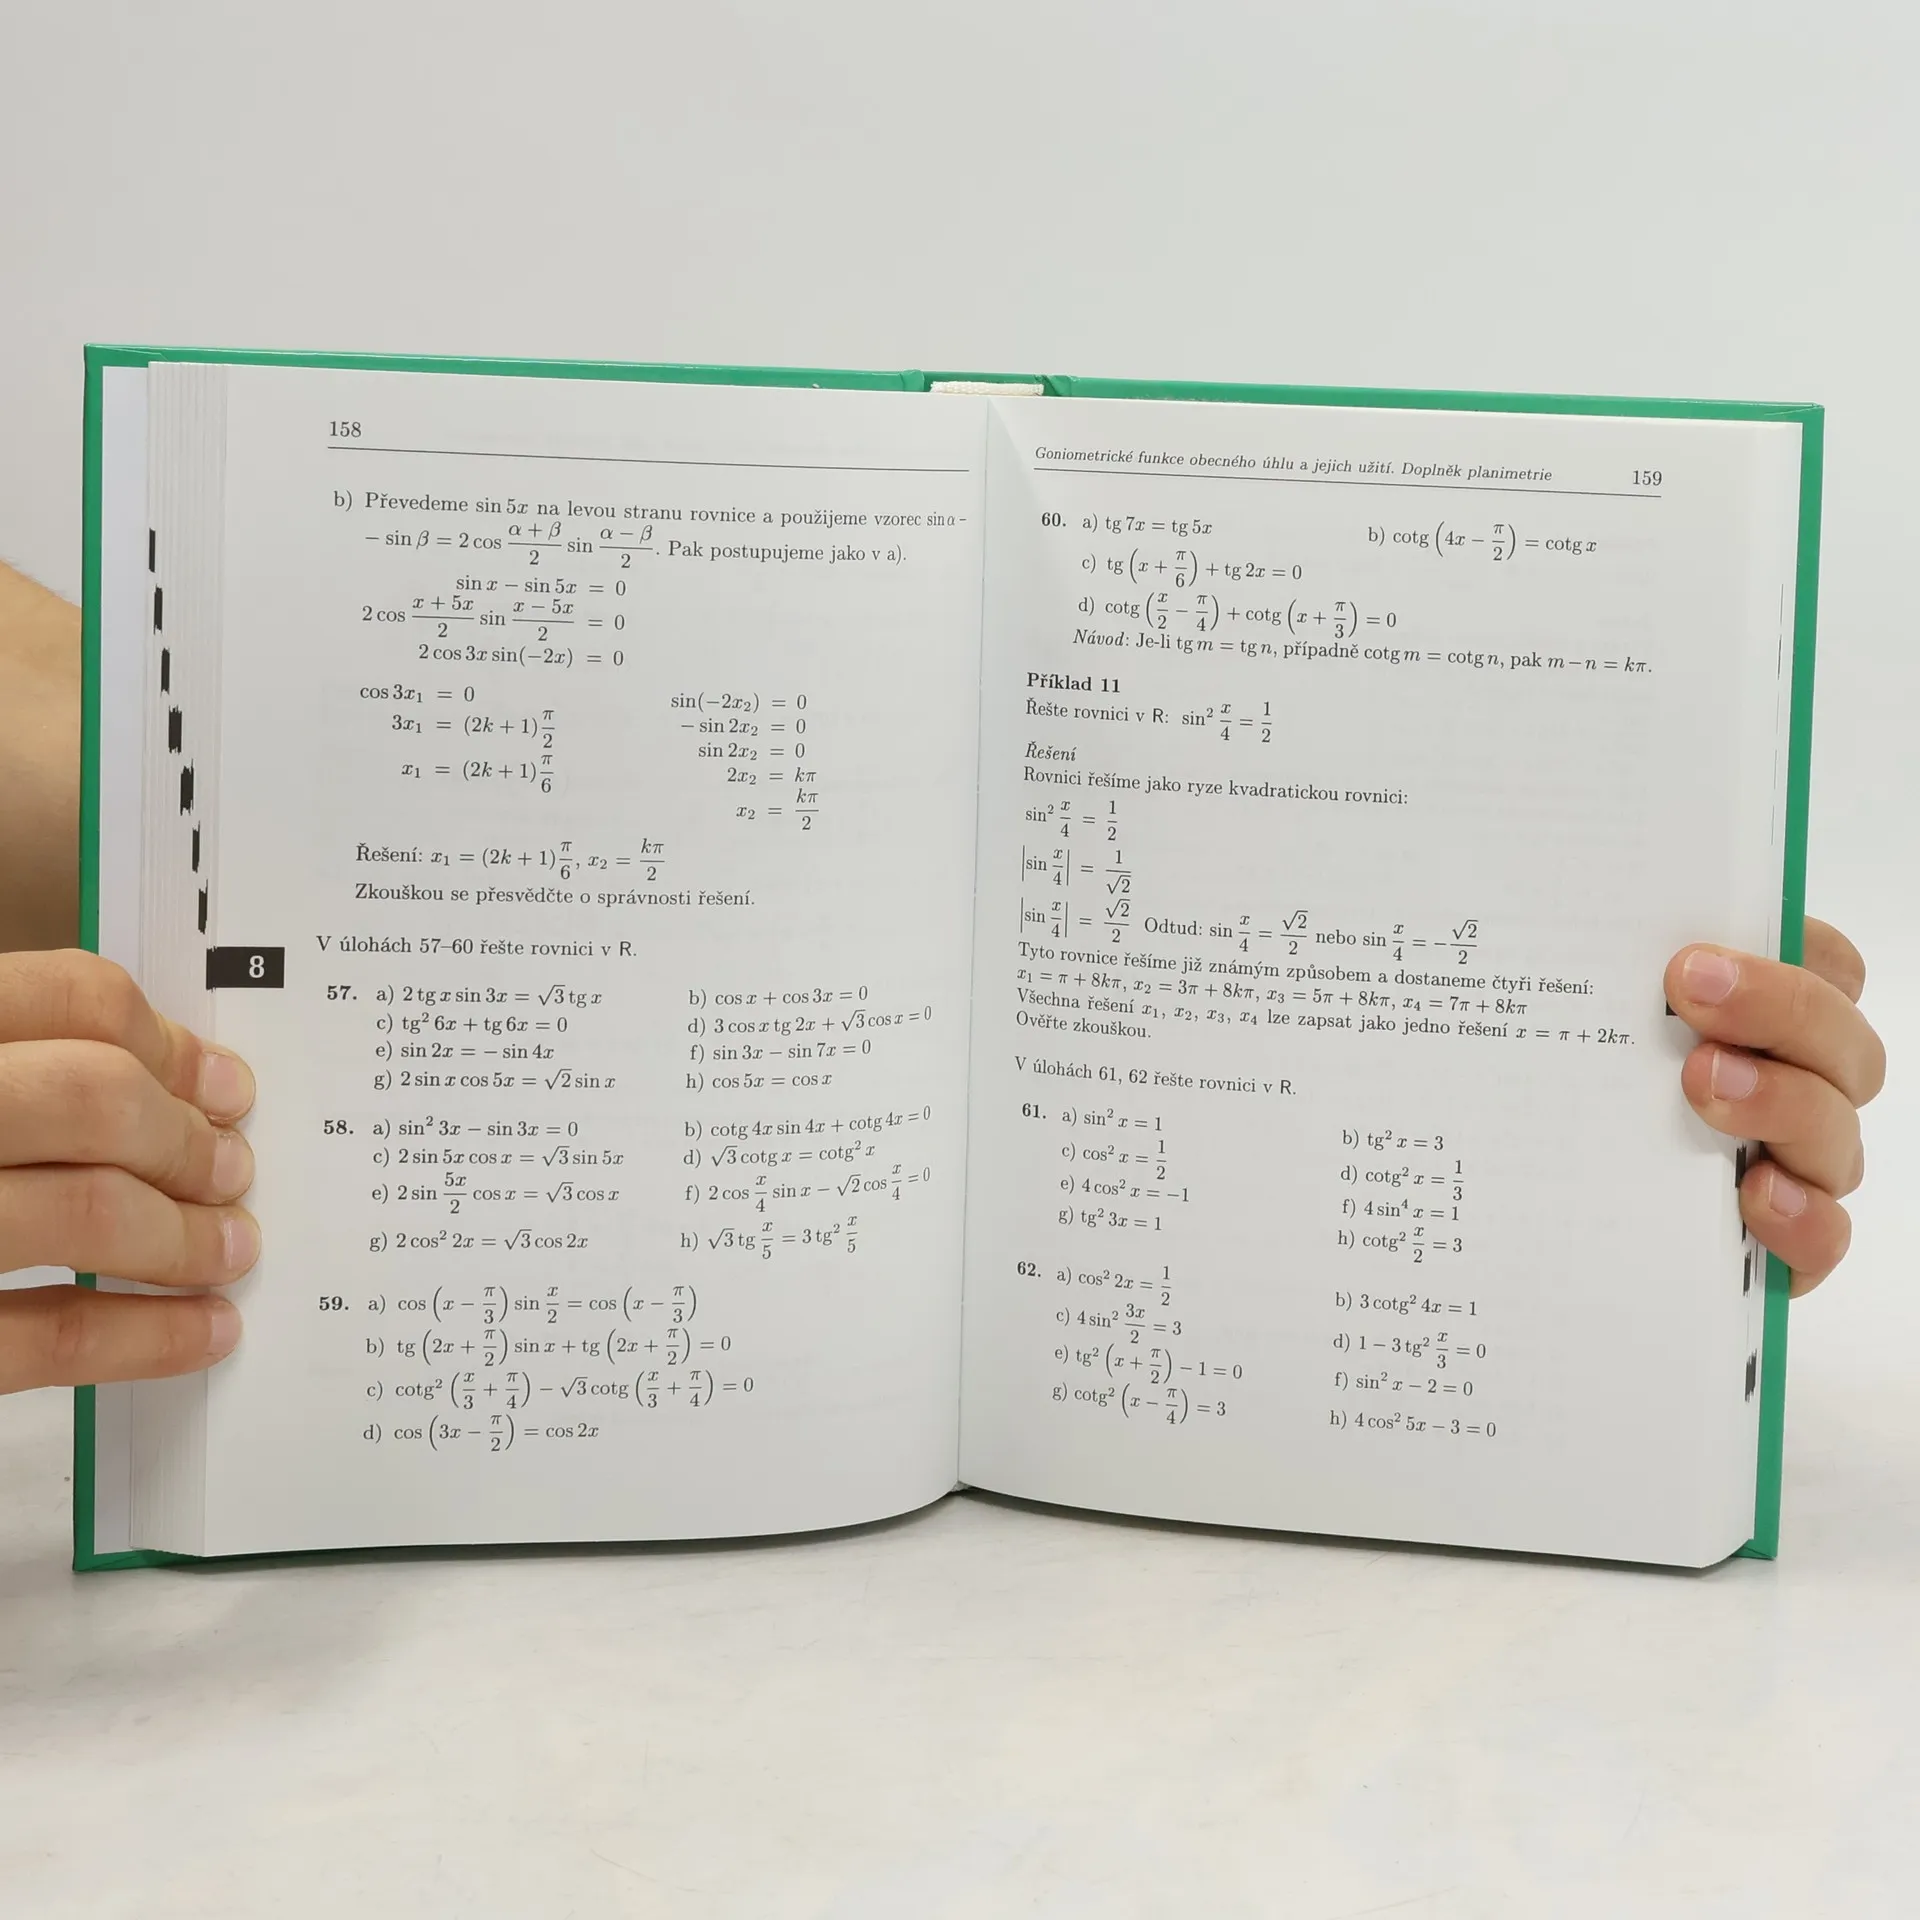 158
b) Převedeme sin 5x na levou stranu rovnice a použijeme vzorec sin α −
− sin β = 2 cos (α + β)/2 sin (α − β)/2. Pak postupujeme jako v a).
sin x − sin 5x = 0
2 cos (x + 5x)/2 sin (x − 5x)/2 = 0
2 cos 3x sin(−2x) = 0
cos 3x₁ = 0
3x₁ = (2k + 1) π/2
x₁ = (2k + 1) π/6
sin(−2x₂) = 0
− sin 2x₂ = 0
sin 2x₂ = 0
2x₂ = kπ
x₂ = kπ/2
Řešení: x₁ = (2k + 1) π/6, x₂ = kπ/2
Zkouškou se přesvědčte o správnosti řešení.
V úlohách 57–60 řešte rovnici v R.
8
57. a) 2 tg x sin 3x = √3 tg x b) cos x + cos 3x = 0
c) tg² 6x + tg 6x = 0 d) 3 cos x tg 2x + √3 cos x = 0
e) sin 2x = − sin 4x f) sin 3x − sin 7x = 0
g) 2 sin x cos 5x = √2 sin x h) cos 5x = cos x
58. a) sin² 3x − sin 3x = 0 b) cotg 4x sin 4x + cotg 4x = 0
c) 2 sin 5x cos x = √3 sin 5x d) √3 cotg x = cotg² x
e) 2 sin 5x/2 cos x = √3 cos x f) 2 cos x/4 sin x − √2 cos x/4 = 0
g) 2 cos² 2x = √3 cos 2x h) √3 tg x/5 = 3 tg² x/5
59. a) cos (x − π/3) sin x/2 = cos (x − π/3)
b) tg (2x + π/2) sin x + tg (2x + π/2) = 0
c) cotg² (x/3 + π/4) − √3 cotg (x/3 + π/4) = 0
d) cos (3x − π/2) = cos 2x
Goniometrické funkce obecného úhlu a jejich užití. Doplněk planimetrie 159
60. a) tg 7x = tg 5x b) cotg (4x − π/2) = cotg x
c) tg (x + π/6) + tg 2x = 0
d) cotg (x/2 − π/4) + cotg (x + π/3) = 0
Návod: Je-li tg m = tg n, případně cotg m = cotg n, pak m − n = kπ.
Příklad 11
Řešte rovnici v R: sin² x/4 = 1/2
Řešení
Rovnici řešíme jako ryze kvadratickou rovnici:
sin² x/4 = 1/2
|sin x/4| = 1/√2
|sin x/4| = √2/2 Odtud: sin x/4 = √2/2 nebo sin x/4 = −√2/2
Tyto rovnice řešíme již známým způsobem a dostaneme čtyři řešení:
x₁ = π + 8kπ, x₂ = 3π + 8kπ, x₃ = 5π + 8kπ, x₄ = 7π + 8kπ
Všechna řešení x₁, x₂, x₃, x₄ lze zapsat jako jedno řešení x = π + 2kπ.
Ověřte zkouškou.
V úlohách 61, 62 řešte rovnici v R.
61. a) sin² x = 1 b) tg² x = 3
c) cos² x = 1/2 d) cotg² x = 1/3
e) 4 cos² x = −1 f) 4 sin⁴ x = 1
g) tg² 3x = 1 h) cotg² x/2 = 3
62. a) cos² 2x = 1/2 b) 3 cotg² 4x = 1
c) 4 sin² 3x/2 = 3 d) 1 − 3 tg² x/3 = 0
e) tg² (x + π/2) − 1 = 0 f) sin² x − 2 = 0
g) cotg² (x − π/4) = 3 h) 4 cos² 5x − 3 = 0